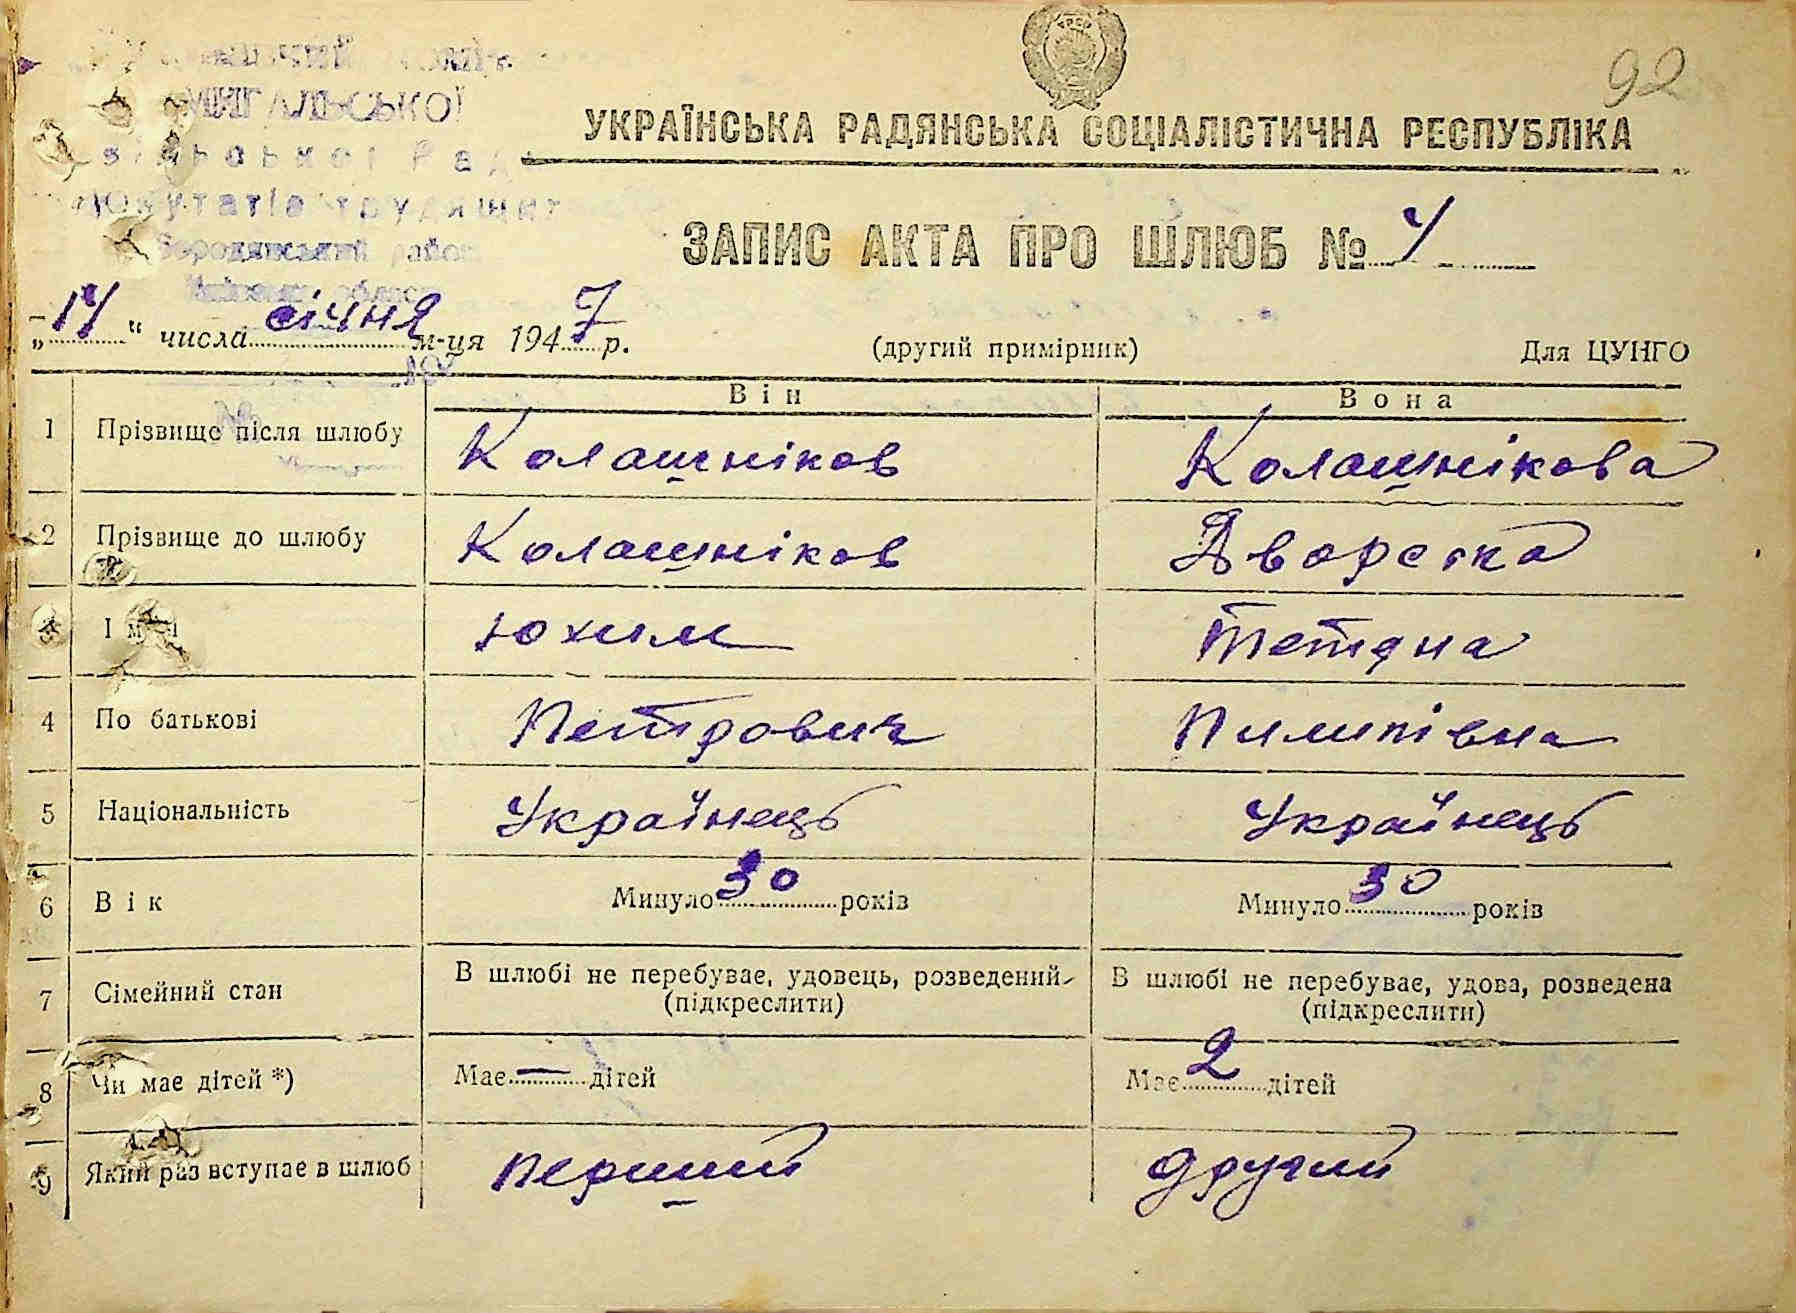 92
МИГАЛЬСЬКОЇ
сільської Рад
депутатів трудящих
Бородянський район
УКРАЇНСЬКА РАДЯНСЬКА СОЦІАЛІСТИЧНА РЕСПУБЛІКА
ЗАПИС АКТА ПРО ШЛЮБ № 4
„14“ числа січня м-ця 1947 р.
(другий примірник)
Для ЦУНГО
Він
Вона
1 Прізвище після шлюбу Колашніков Колашнікова
2 Прізвище до шлюбу Колашніков Дворська
3 Ім'я Юхим Тетяна
4 По батькові Петрович Пилипівна
5 Національність Українець Українець
6 Вік Минуло 30 років Минуло 30 років
7 Сімейний стан В шлюбі не перебуває, удовець, розведений В шлюбі не перебуває, удова, розведена
(підкреслити) (підкреслити)
8 Чи має дітей *) Має — дітей Має 2 дітей
9 Який раз вступає в шлюб перший другий